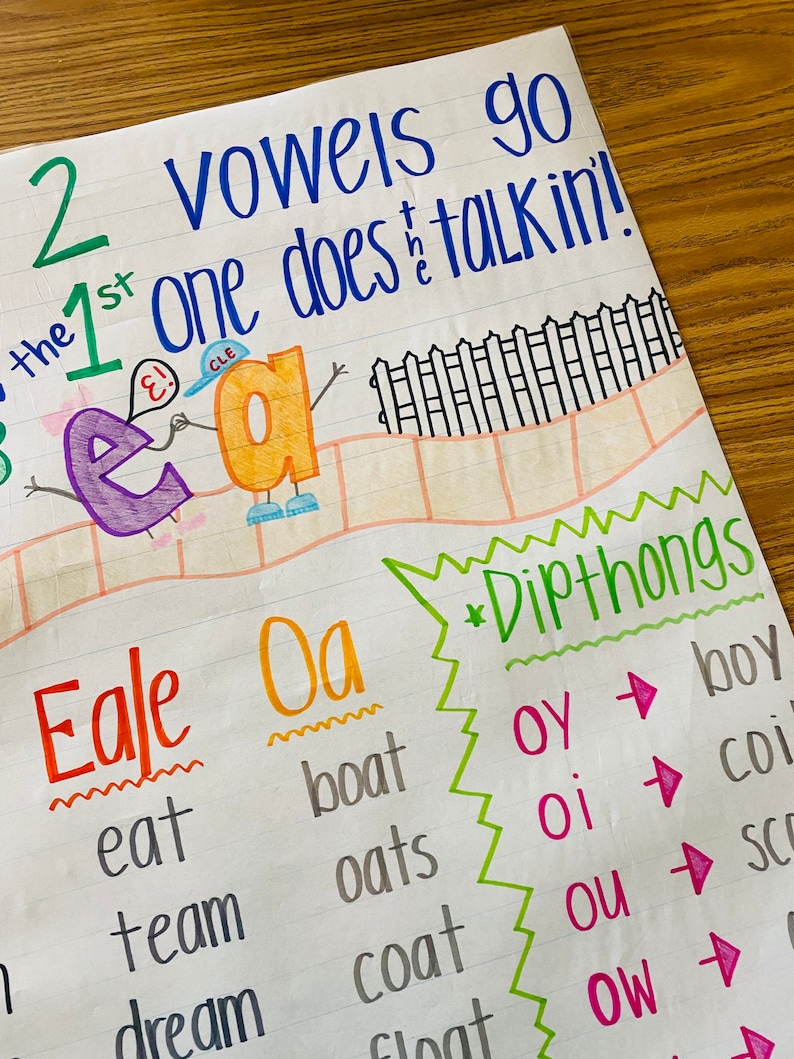 2 vowels go
the 1st one does the talkin'!
E!
CLE
Ea|e
eat
team
dream
Oa
boat
oats
coat
float
*Dipthongs
oy → boy
oi → coi
ou → sc
ow →